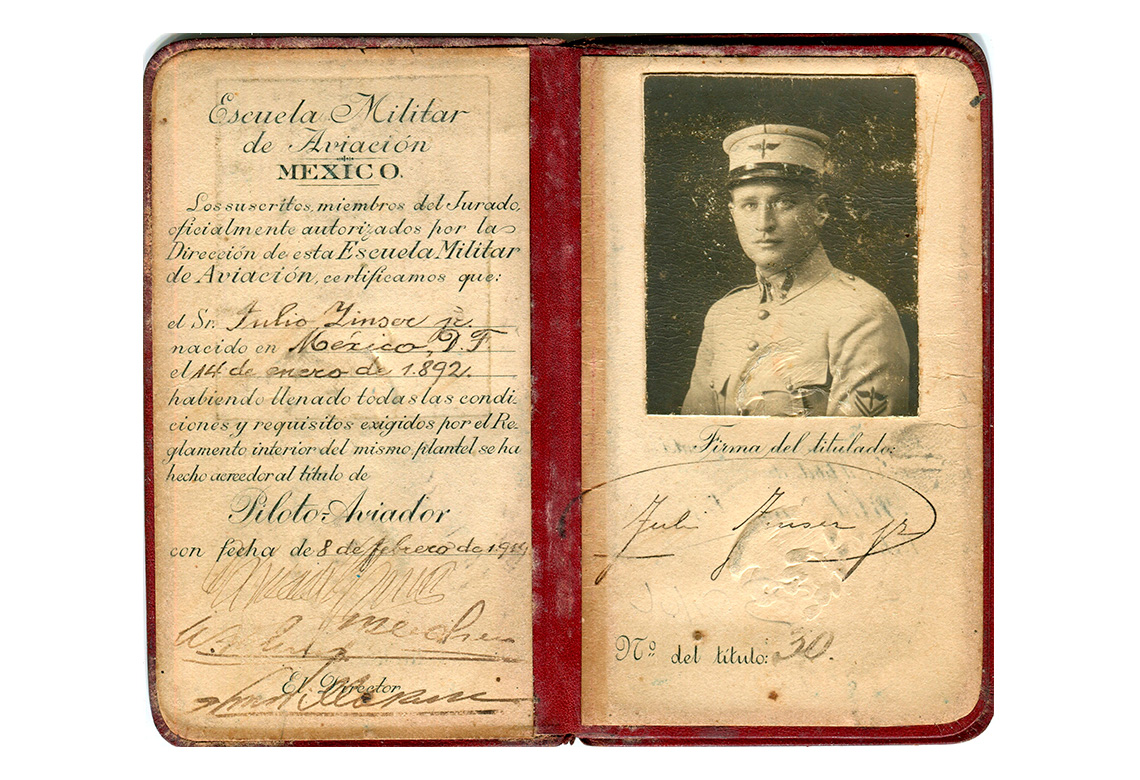 Escuela Militar
de Aviación
MEXICO.
Los suscritos, miembros del Jurado,
oficialmente autorizados por la
Dirección de esta Escuela Militar
de Aviación, certificamos que:
el Sr. Julio Zinser jr.
nacido en México, D.F
el 14 de enero de 1.892.
habiendo llenado todas las condi-
ciones y requisitos exigidos por el Re-
glamento interior del mismo plantel se ha
hecho acreedor al título de
Piloto-Aviador
con fecha de 8 de febrero de 1.919
El Director
Firma del titulado:
Julio Zinser jr
Nº del título: 30.